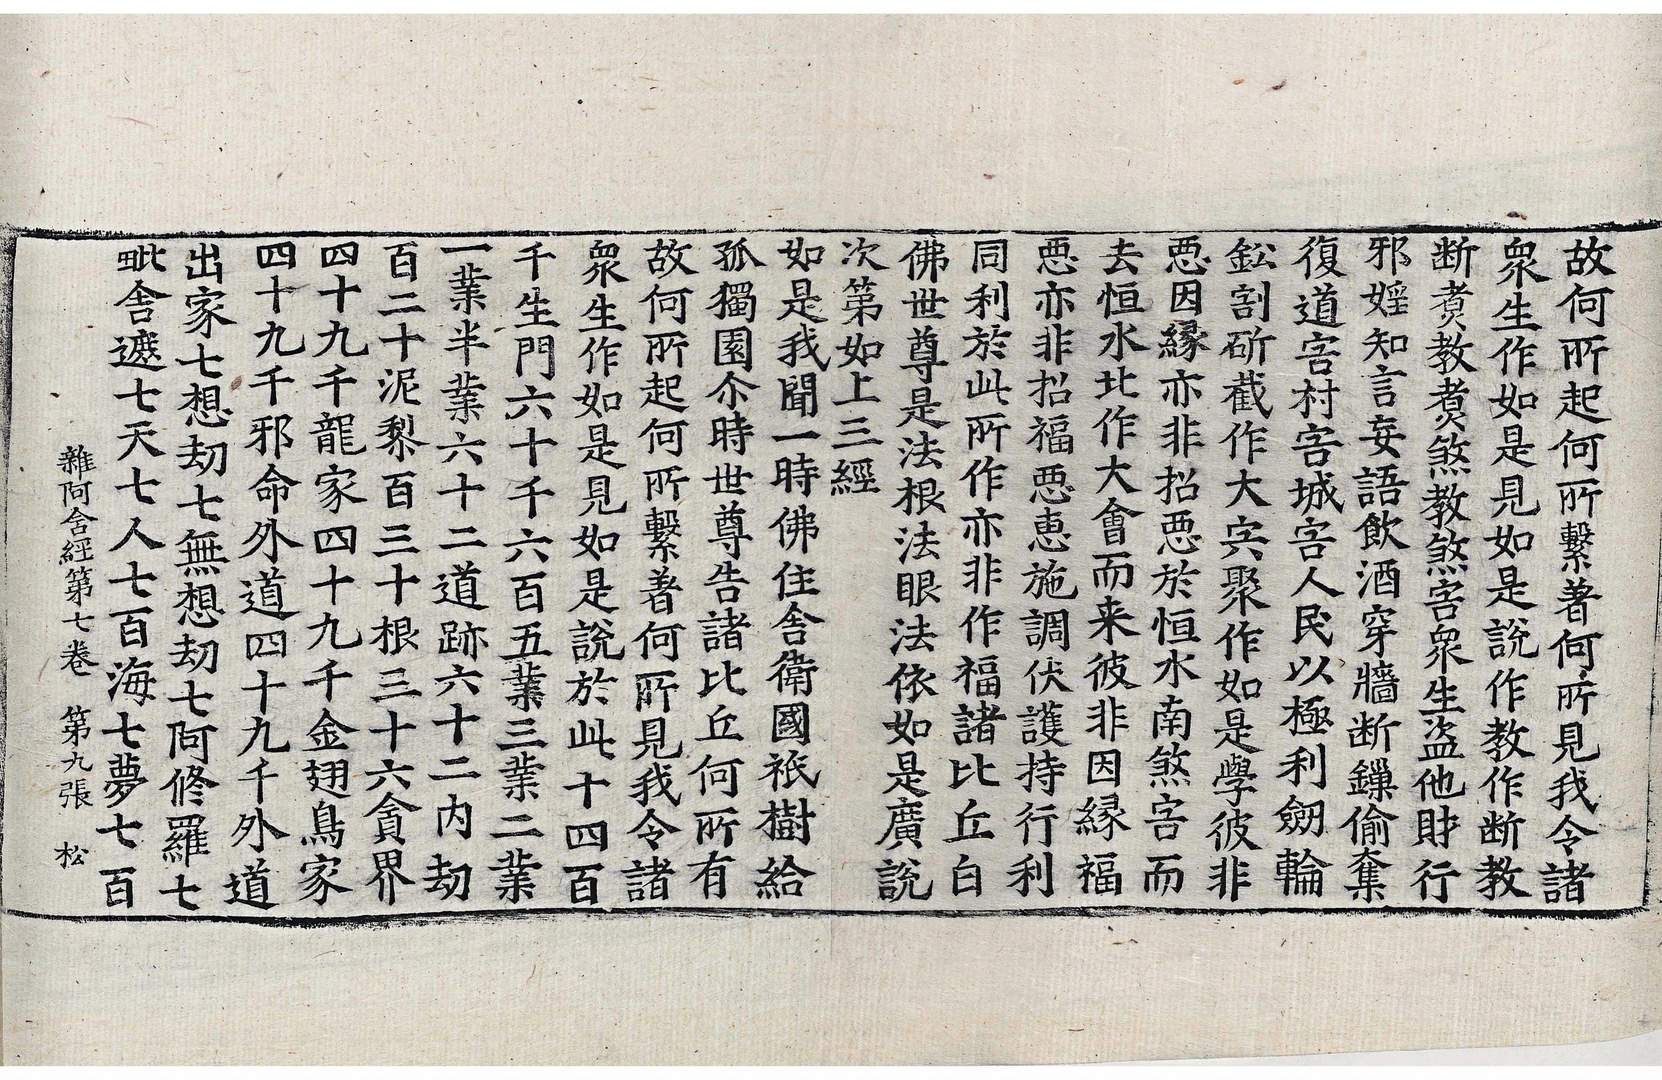 故何所起何所繫著何所見我令諸
衆生作如是見如是說作教作断教
断煑教煑煞教煞害衆生盜他財行
邪婬知言妄語飲酒穿牆断鏁偷奪
復道害村害城害人民以極利劒輪
鈆割斫截作大㒶聚作如是學彼非
惡因縁亦非招惡於恒水南煞害而
去恒水北作大會而来彼非因縁福
惡亦非招福惡恵施調伏護持行利
同利於此所作亦非作福諸比丘白
佛世尊是法根法眼法依如是廣說
次第如上三經
如是我聞一時佛住舍衛國祇樹給
孤獨園尒時世尊告諸比丘何所有
故何所起何所繫著何所見我令諸
衆生作如是見如是說於此十四百
千生門六十千六百五業三業二業
一業半業六十二道跡六十二内劫
百二十泥犁百三十根三十六貪界
四十九千龍家四十九千金翅鳥家
四十九千邪命外道四十九千外道
出家七想劫七無想劫七阿修羅七
毗舍遮七天七人七百海七夢七百
雜阿含經第七卷　第九張　松